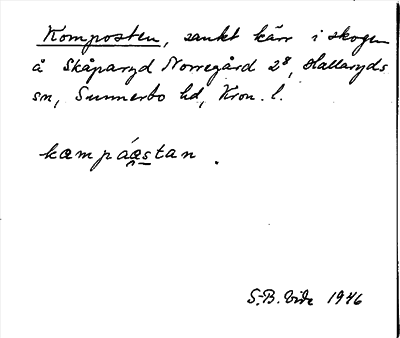 Komposten, sankt kärr i skogen
å Skåparyd Norregård 2⁸, Hallaryds
sn, Sunnerbo hd, Kron. l.
kæmpáæstan.
S.-B. Vide 1946